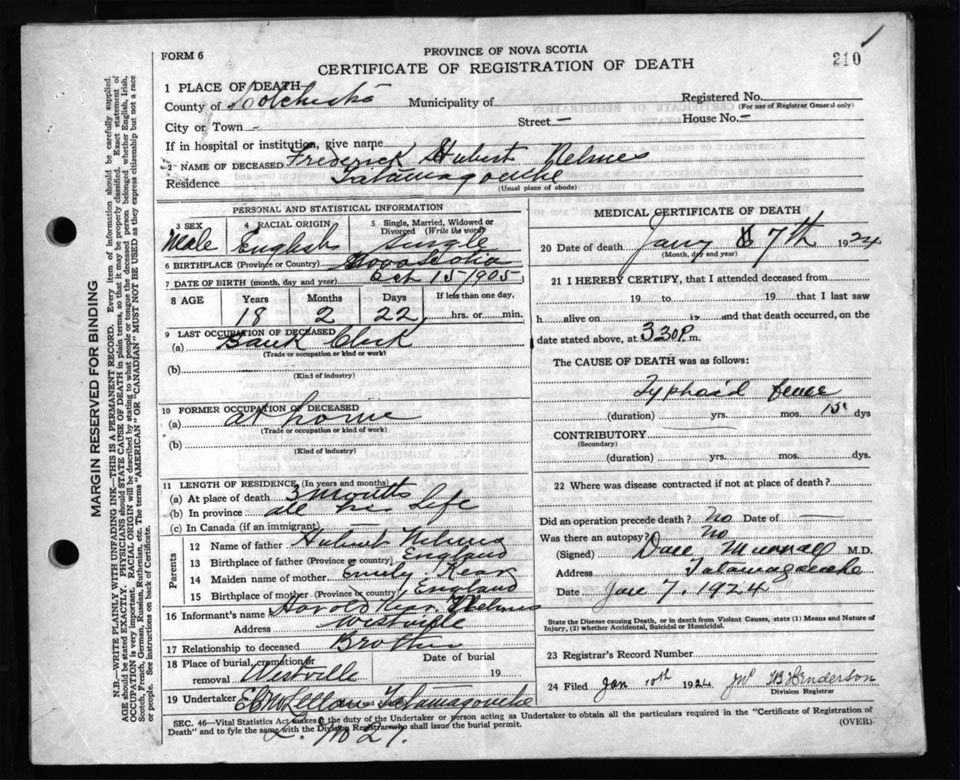 FORM 6
PROVINCE OF NOVA SCOTIA
CERTIFICATE OF REGISTRATION OF DEATH
210
1 PLACE OF DEATH
County of Colchester Municipality of
Registered No.
(For use of Registrar General only)
City or Town - Street - House No. -
If in hospital or institution, give name
2 NAME OF DECEASED Frederick Hubert Nelmes
Residence Tatamagouche
(Usual place of abode)
PERSONAL AND STATISTICAL INFORMATION
3 SEX 4 RACIAL ORIGIN 5 Single, Married, Widowed or Divorced (Write the word)
Male English Single
6 BIRTHPLACE (Province or Country) Nova Scotia
7 DATE OF BIRTH (month, day and year) Oct 15 1905
8 AGE Years Months Days If less than one day,
18 2 22 hrs. or min.
9 LAST OCCUPATION OF DECEASED
(a) Bank Clerk
(Trade or occupation or kind or work)
(b)
(Kind of industry)
10 FORMER OCCUPATION OF DECEASED
(a) at home
(Trade or occupation or kind of work)
(b)
(Kind of industry)
11 LENGTH OF RESIDENCE (In years and months)
(a) At place of death 3 months
(b) In province all his life
(c) In Canada (if an immigrant)
Parents
12 Name of father Hubert Nelmes
13 Birthplace of father (Province or country) England
14 Maiden name of mother Emily Rear
15 Birthplace of mother (Province or country) England
16 Informant's name Harold Nelmes
Address Westville
17 Relationship to deceased Brother
18 Place of burial, cremation or removal Westville Date of burial 19
19 Undertaker Tatamagouche
MEDICAL CERTIFICATE OF DEATH
20 Date of death Jany 7th 1924
(Month, day and year)
21 I HEREBY CERTIFY, that I attended deceased from
19 to 19 that I last saw
h alive on 19 and that death occurred, on the
date stated above, at 3 30 P. m.
The CAUSE OF DEATH was as follows:
Typhoid fever
(duration) yrs. mos. 15 dys
CONTRIBUTORY
(Secondary)
(duration) yrs. mos. dys.
22 Where was disease contracted if not at place of death?
Did an operation precede death? No Date of —
Was there an autopsy? No
(Signed) Dan Murray M.D.
Address Tatamagouche
Date Jan 7. 1924
State the Disease causing Death, or in death from Violent Causes, state (1) Means and Nature of Injury, (2) whether Accidental, Suicidal or Homicidal.
23 Registrar's Record Number
24 Filed Jan 10th 1924 Henderson
Division Registrar
SEC. 46—Vital Statistics Act makes it the duty of the Undertaker or person acting as Undertaker to obtain all the particulars required in the "Certificate of Registration of
Death" and to fyle the same with the Division Registrar who shall issue the burial permit. (OVER)
MARGIN RESERVED FOR BINDING
N.B.—WRITE PLAINLY WITH UNFADING INK—THIS IS A PERMANENT RECORD. Every item of information should be carefully supplied.
AGE should be stated EXACTLY. PHYSICIANS should STATE CAUSE OF DEATH in plain terms, so that it may be properly classified. Exact statement of
OCCUPATION is very important. RACIAL ORIGIN will be described by stating to what people or tongue the deceased person belonged whether English, Irish,
Scotch, French, German, Russian, Ruthenian, etc. The terms "AMERICAN" OR "CANADIAN" MUST NOT BE USED as they express citizenship but not a race
or people. See instructions on back of Certificate.